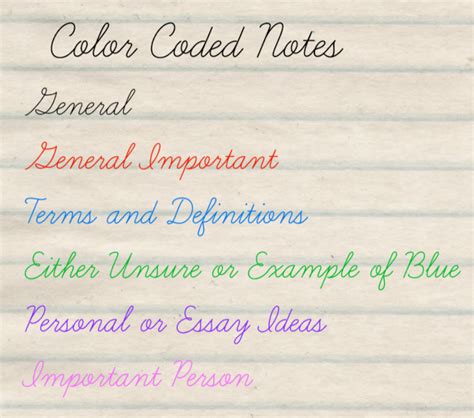 Color Coded Notes
General
General Important
Terms and Definitions
Either Unsure or Example of Blue
Personal or Essay Ideas
Important Person